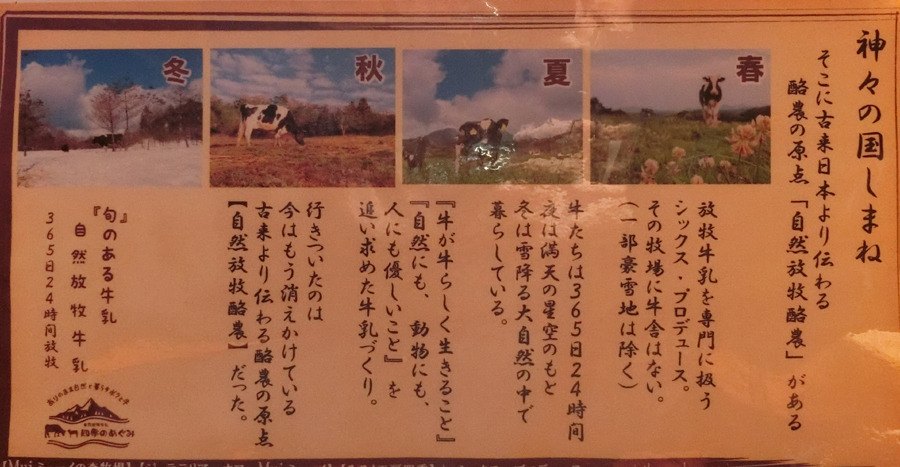 神々の国しまね
そこに古来日本より伝わる
酪農の原点「自然放牧酪農」がある
春
夏
秋
冬
放牧牛乳を専門に扱う
シックス・プロデュース。
その牧場に牛舎はない。
(一部豪雪地は除く)
牛たちは365日24時間
夜は満天の星空のもと
冬は雪降る大自然の中で
暮らしている。
『牛が牛らしく生きること』
『自然にも、動物にも、
人にも優しいこと』を
追い求めた牛乳づくり。
行きついたのは
今はもう消えかけている
古来より伝わる酪農の原点
【自然放牧酪農】だった。
『旬のある牛乳』
自然放牧牛乳
365日24時間放牧